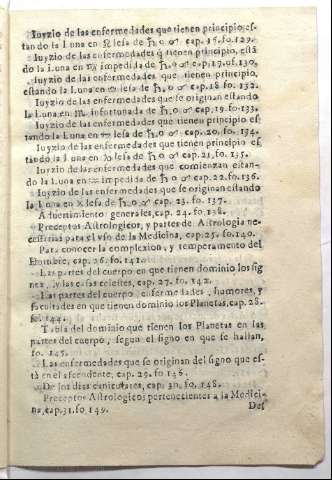 Iuyzio de las enfermedades que tienen principio es-
tando la Luna en ♌ lesa de ♄, o ♂ cap. 16. fo. 129.
Iuyzio de las enfermedades q̃ tienen principio, está
do la Luna en ♍ impedida de ♄, o ♂ cap. 17. of. 130.
Iuyzio de las enfermedades que tienen principio,
estando la Luna en ♎ lesa de ♄, o ♂ cap. 18 fo. 132.
Iuyzio de las enfermedades que se originan estando
la Luna en ♏ infortunada de ♄, o ♂ cap. 19. fo. 133.
Iuyzio de las enfermedades que tienen principio es
tando la Luna en ♐ lesa de ♄, o ♂ cap. 20. fo. 134.
Iuyzio de las enfermedades que tienen principio es
tando la Luna en ♑ lesa de ♄, o ♂ cap. 21. fo. 135.
Iuyzio de las enfermedades que comienzan estan-
do la Luna en ♒ impedida de ♄, o ♂ cap. 22. fo. 136.
Iuyzio de las enfermedades que se originan estando
la Luna en ♓ lesa de ♄, o ♂ cap. 23. fo. 137.
Aduertimientos generales, cap. 24. fo. 138.
Preceptos Astrologicos, y partes de Astrologia ne-
cessarias para el vso de la Medicina, cap. 25. fo. 140.
Para conocer la complexion, y temperamento del
Hombre, cap. 26. fo. 141.
Las partes del cuerpo en que tienen dominio los sig
nos, y las casas celestes, cap. 27. fo. 142.
Las partes del cuerpo, enfermedades, humores, y
facultades en que tienen dominio los Planetas, cap. 28.
fo. 144.
Tabla del dominio que tienen los Planetas en las
partes del cuerpo, segun el signo en que se hallan,
fo. 145.
Las enfermedades que se originan del signo que es-
tà en el ascendente, cap. 29. fo 146.
De los dias caniculares, cap. 30. fo. 148.
Preceptos Astrologicos pertenecientes a la Medici-
na, cap. 31. fo. 149.
Des